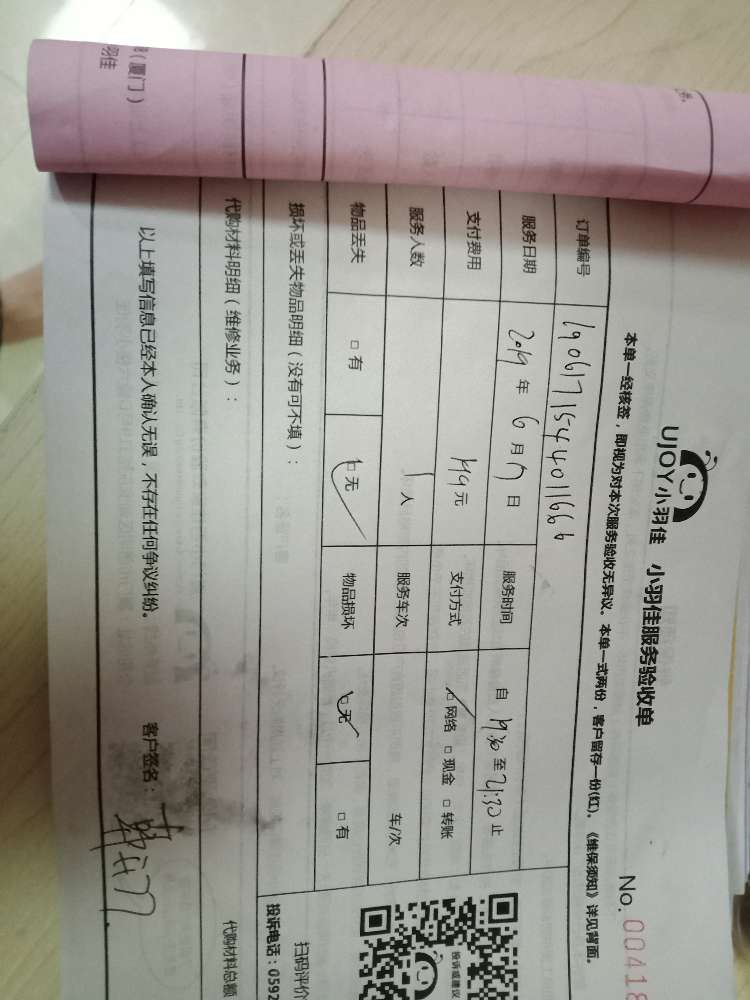 UJOY小羽佳 小羽佳服务验收单
No. 00418
本单一经核签，即视为对本次服务验收无异议。本单一式两份，客户留存一份(红)。《维保须知》详见背面。
订单编号 190617154401166 6
服务日期 2019 年 6 月 17 日 服务时间 自 19:30 至 21:30 止
支付费用 149 元 支付方式 □ 网络 □ 现金 □ 转账
服务人数 1 人 服务车次 车/次
物品丢失 □ 有 □ 无 物品损坏 □ 无 □ 有
损坏或丢失物品明细（没有可不填）：
代购材料明细（维修业务）：
代购材料总额
以上填写信息已经本人确认无误，不存在任何争议纠纷。 客户签名：
投诉或建议
扫码评价
投诉电话：0592
（厦门）
羽佳